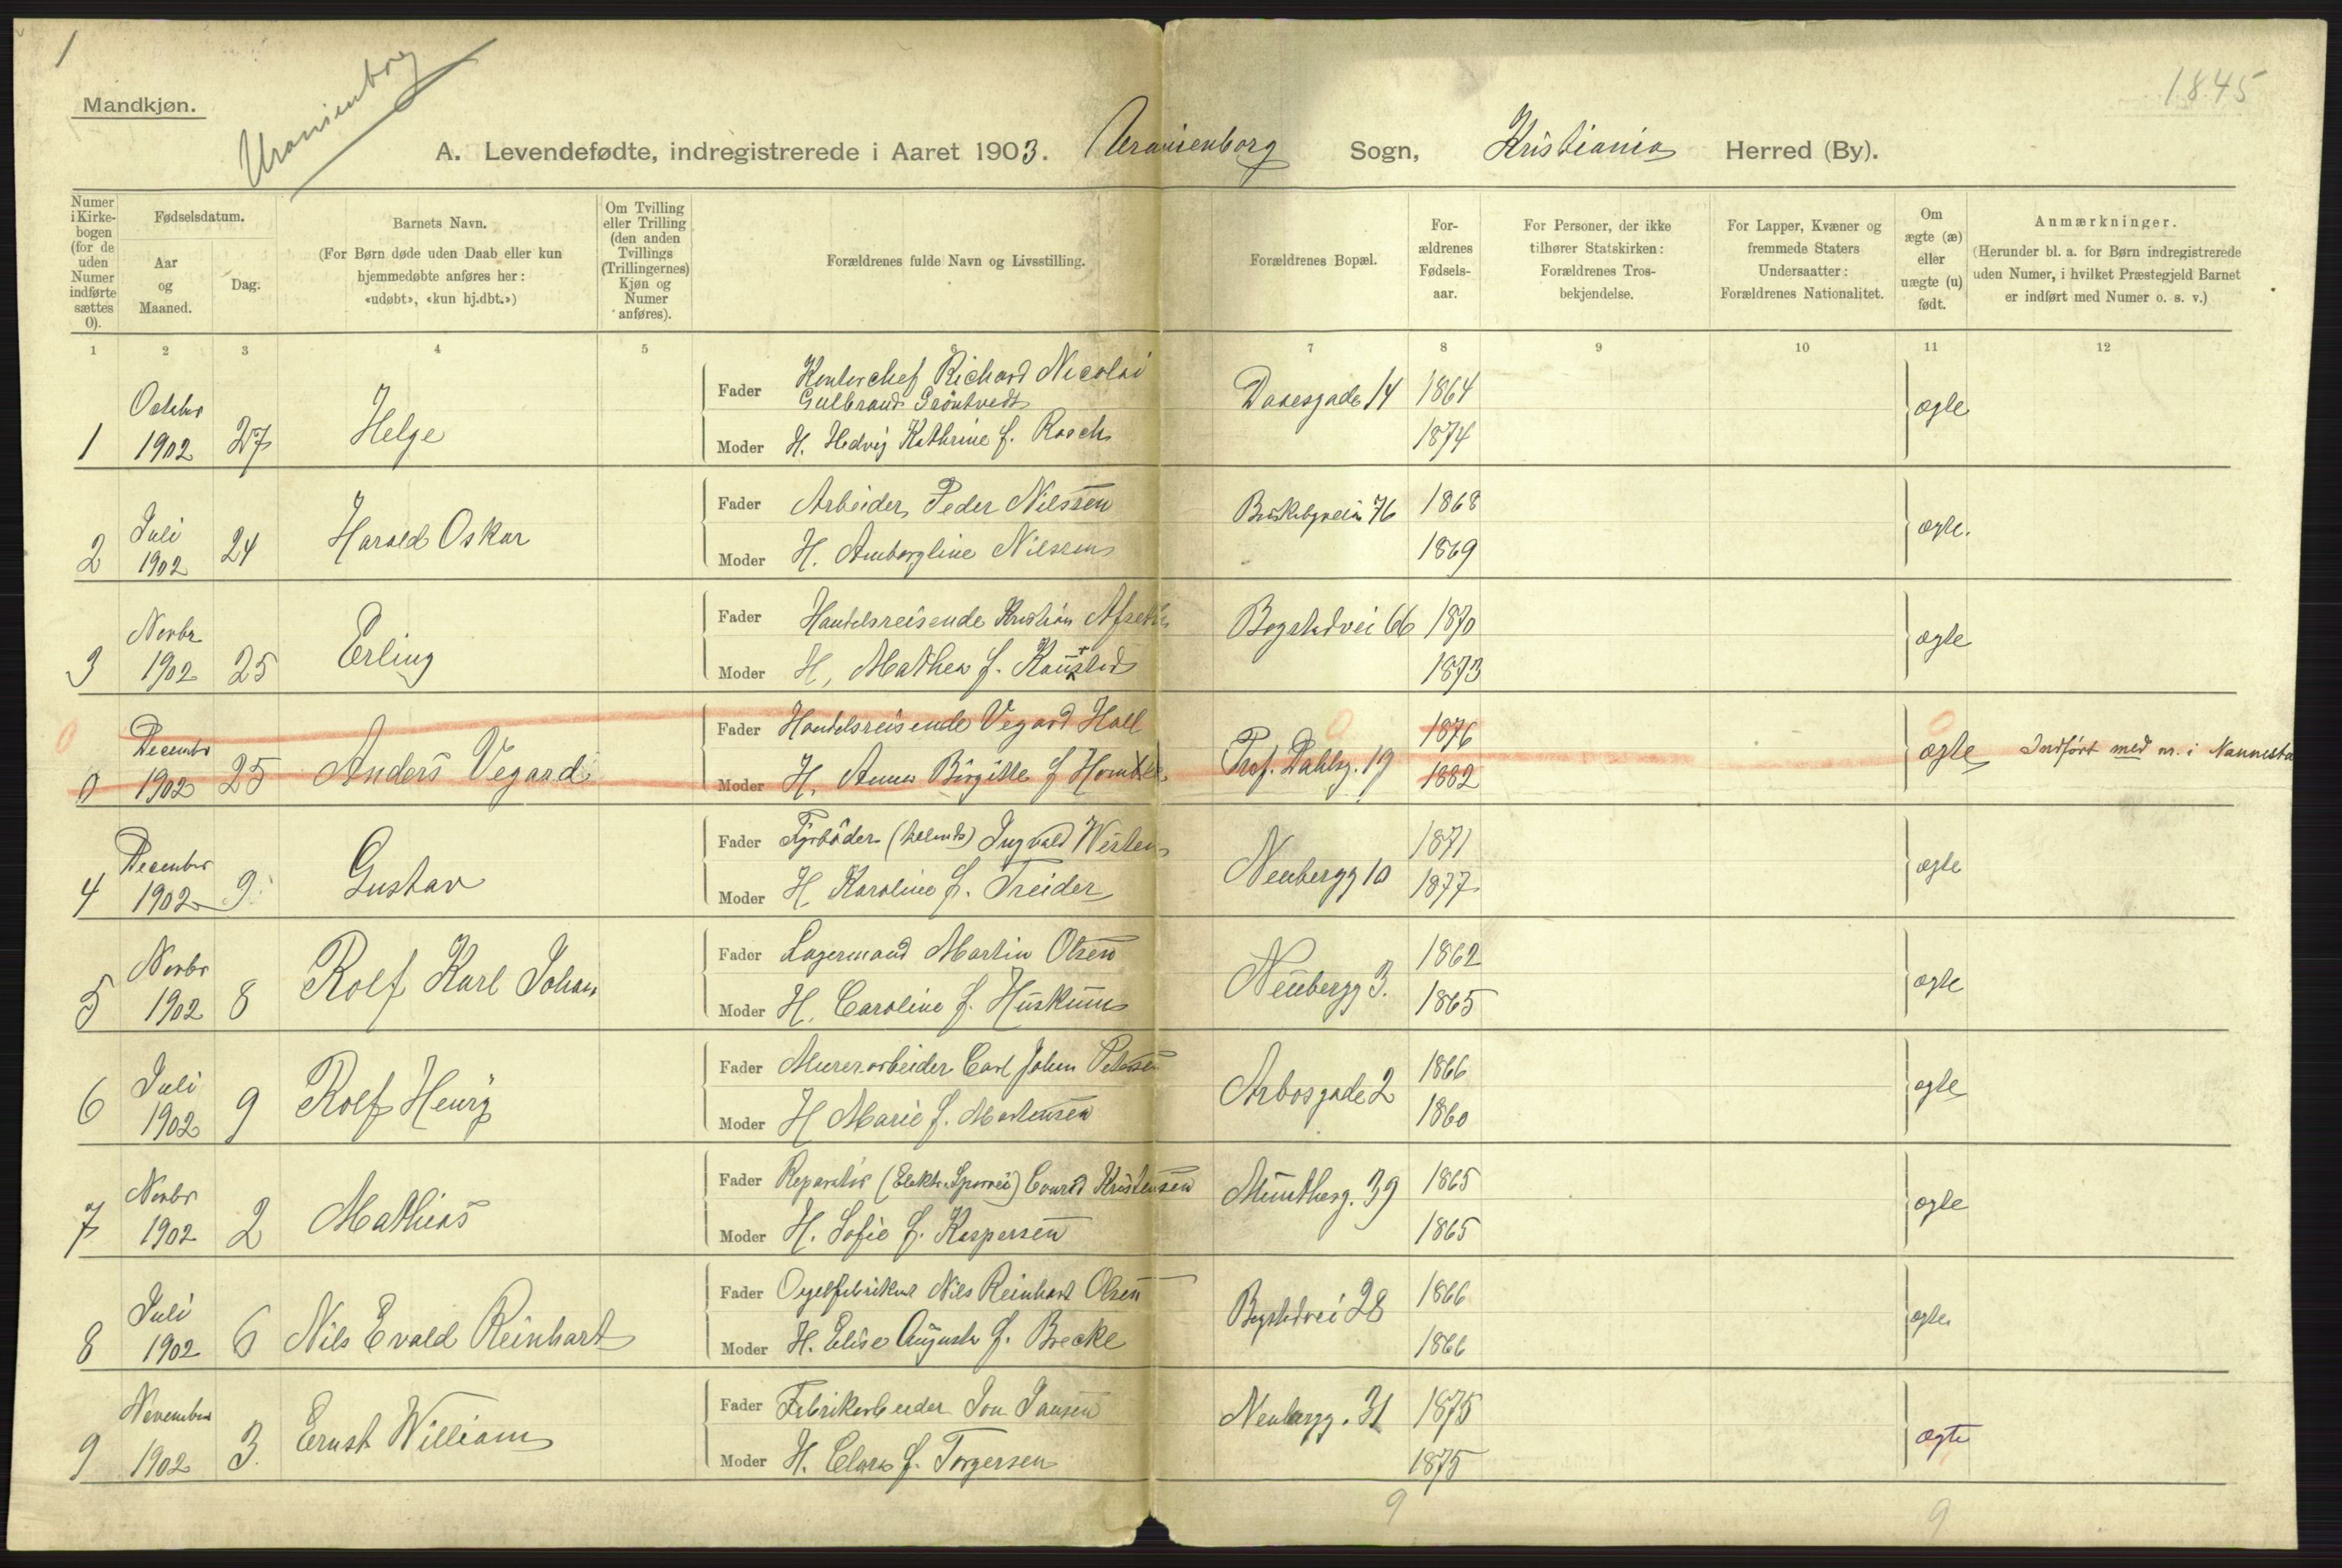 1
Mandkjøn.
Uranienborg
1845
A. Levendefødte, indregistrerede i Aaret 1903. Uranienborg Sogn, Kristiania Herred (By).
Numer i Kirkebogen (for de uden Numer indførte sættes 0).
Fødselsdatum.
Aar og Maaned.
Dag.
Barnets Navn.
(For Børn døde uden Daab eller kun hjemmedøbte anføres her: «udøbt», «kun hj.dbt.»)
Om Tvilling eller Trilling (den anden Tvillings (Trillingernes) Kjøn og Numer anføres).
Forældrenes fulde Navn og Livsstilling.
Forældrenes Bopæl.
Forældrenes Fødselsaar.
For Personer, der ikke tilhører Statskirken: Forældrenes Trosbekjendelse.
For Lapper, Kvæner og fremmede Staters Undersaatter: Forældrenes Nationalitet.
Om ægte (æ) eller uægte (u) født.
Anmærkninger.
(Herunder bl. a. for Børn indregistrerede uden Numer, i hvilket Præstegjeld Barnet er indført med Numer o. s. v.)
1 2 3 4 5 6 7 8 9 10 11 12
1 Octobr 1902 27 Helge
Fader Kontorchef Richard Nicolai Gulbrand Gröntvedt
Moder H. Hedvig Kathrine f. Rasch
Daaesgade 14 1864 1874 ægte
2 Juli 1902 24 Harald Oskar
Fader Arbeider Peder Nilssen
Moder H. Amborgline Nilssen
Briskebyveien 76 1868 1869 ægte.
3 Novbr 1902 25 Erling
Fader Handelsreisende Kristian
Moder H. Mathea f.
Bogstadvei 66 1870 1873 ægte
0 0 Decembr 1902 25 Anders Vegard
Fader Handelsreisende Vegard Hall
Moder H. Anna Birgitte f
Prof. Dahlsg. 19 0 1876 1882 0 ægte Indført med nr. i
4 December 1902 9. Gustav
Fader Fyrbøder Ingvald
Moder H Karoline f. Treider
Neubergg 10 1871 1877 ægte
5 Novbr 1902 8 Rolf Karl Johan
Fader Lagermand Martin Olsen
Moder H. Caroline f. Huskum
Neubergg 3. 1862 1865 ægte
6 Juli 1902 9 Rolf Henry
Fader Murerarbeider Carl Johan Petersen
Moder H Marie f. Mortensen
Arbosgade 2 1866 1860 ægte
7 Novbr 1902 2 Mathias
Fader Reparatør (Elektr. Sporvei) Conrad Kristensen
Moder H. Sofie f. Kaspersen
Munthesg. 39 1865 1865 ægte
8 Juli 1902 6 Nils Evald Reinhart
Fader Orgelfabrikant Nils Reinhart Olsen
Moder H. Elise Augusta f. Brecke
Bogstadvei 28 1866 1866 ægte
9 November 1902 3. Ernst William
Fader Fabrikarbeider Jon Jansen
Moder H. Clara f. Torgersen
Neubergg. 31 1875 1875 ægte
9 9